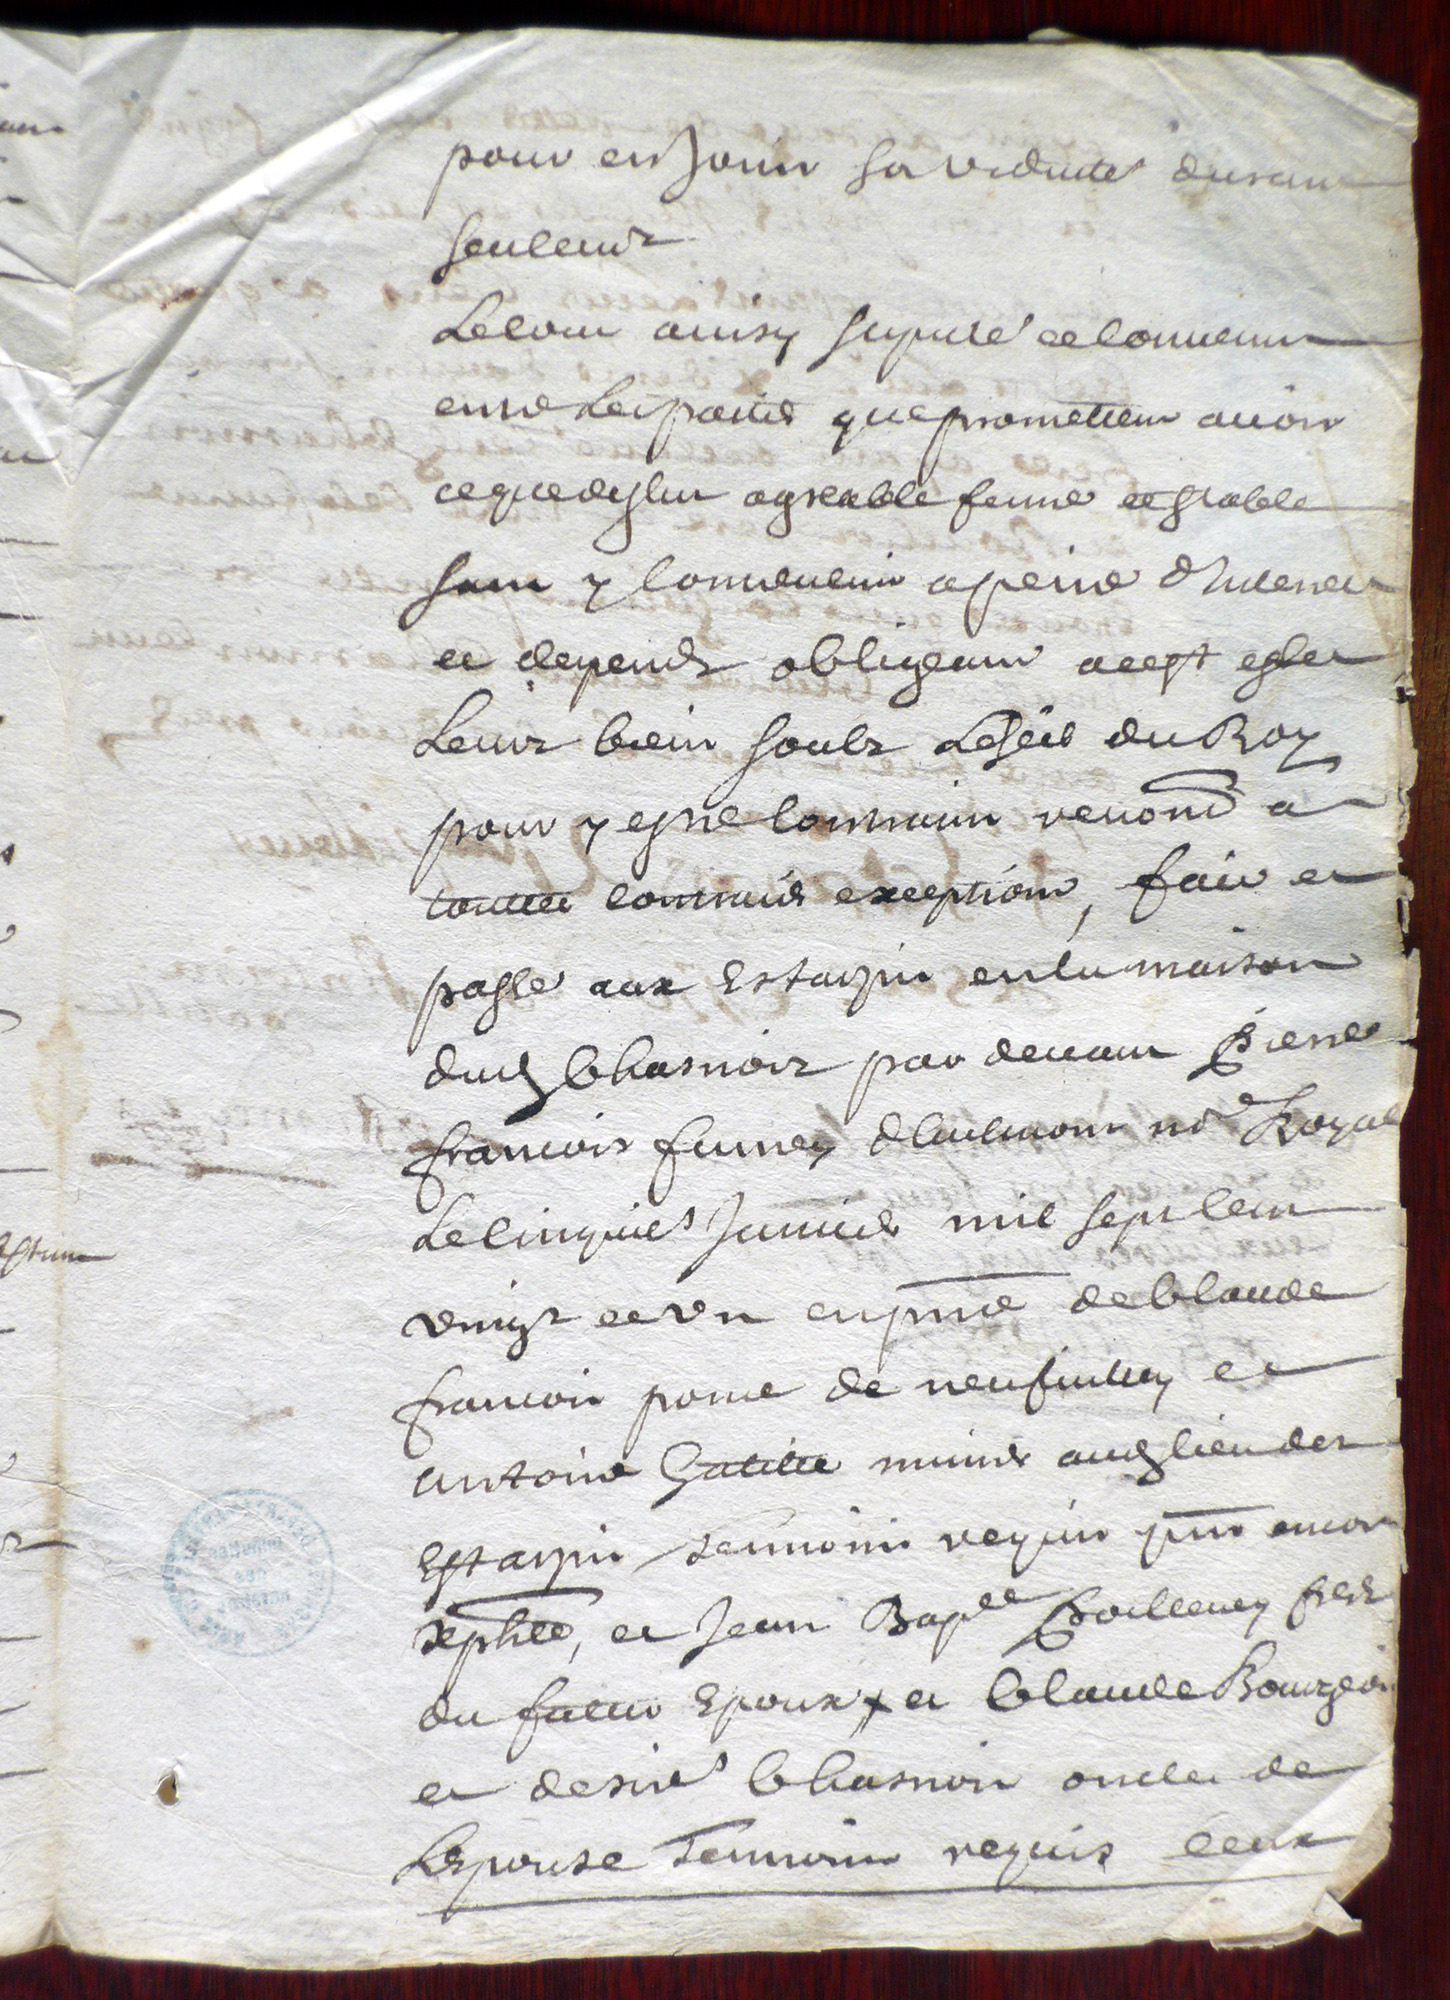 pour en Jouir sa viduité durant
seulemt
Le tout ainsy stipulé et convenu
entre Les parties que promettent avoir
ce que dessus agreable ferme et stable
sans y contrevenir a peine d'Interest
et depends obligeant a cest effect
Leurs biens soubz Le Seel du Roy
pour y estre contraint renoncé a
toutte contraire exceptions, fait et
passé aux Estarpin en la maison
dud Chasnoir par devant Pierre
francois furney no re Royal
Le cinquie Janvier mil sept cent
vingt et un en pnce de Claude
francois de et
antoine aud lieu des
Estarpin temoins requis pnt encor
et Jean Bap te frere
du futur Epoux et Claude Bourgeois
et desiré Chasnoir oncles de
Lepouse Temoins requis ceux